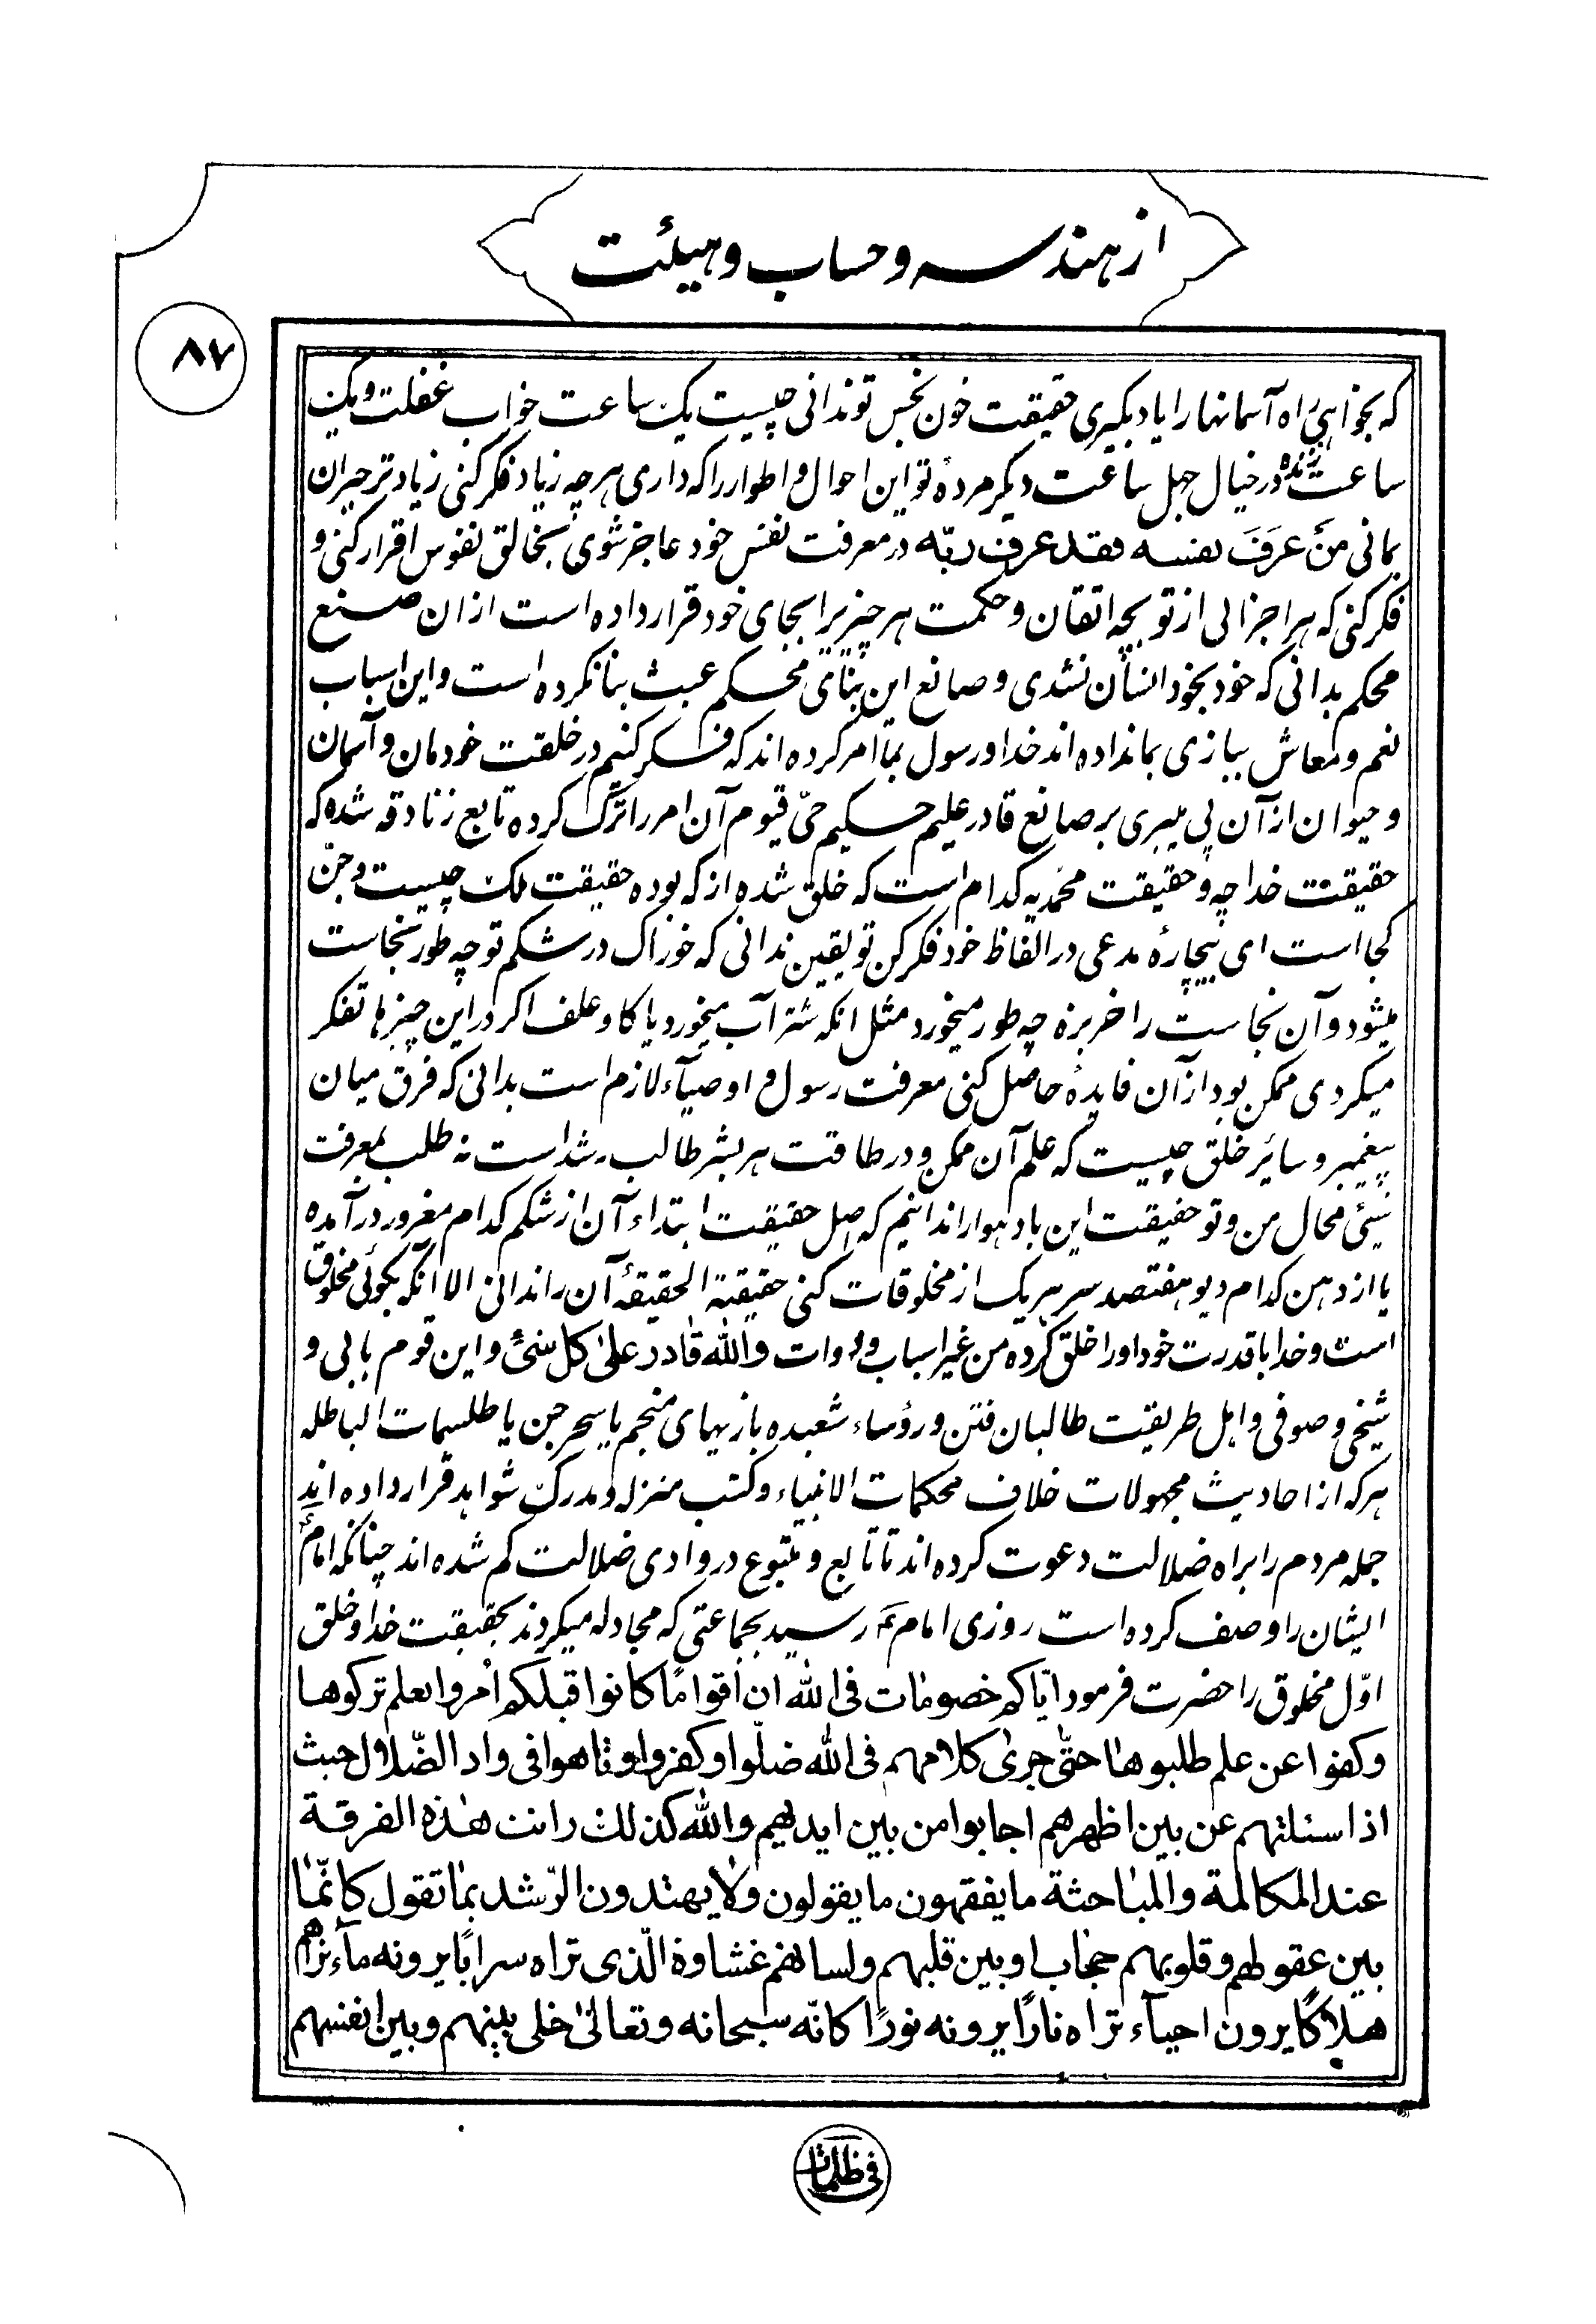 از هندسه و حساب و هیئت
۸۷
که بخواهی راه آسمانها را یاد بگیری حقیقت خون نجس تو ندانی چیست یک ساعت خواب غفلت و یک
ساعت زنده در خیال جهل ساعت دیگر مردهٔ تو این احوال و اطوار را که داری هر چه زیاد فکر کنی زیادتر حیران
بمانی مَنْ عَرَفَ نفسه فقد عرف ربّه در معرفت نفس خود عاجز شوی بخالق نفوس اقرار کنی و
فکر کنی که هر اجزالی از تو بچه اتقان و حکمت هر چیز را بجای خود قرار داده است از ان صنع
محکم بدانی که خود بخود انسان نشدی و صانع این بنای محکم عبث بنا نکرده است و این اسباب
نعم و معاش ببازی بما نداده اند خدا و رسول بما امر کرده اند که فکر کنیم در خلقت خودمان و آسمان
و حیوان از آن پی میبری بر صانع قادر علیم حکیم حیّ قیوم آن امر را ترک کرده تابع زنادقه شده که
حقیقت خدا چه و حقیقت محمّدیه کدام است که خلق شده از که بوده حقیقت ملک چیست و جنّ
کجا است ای بیچارهٔ مدعی در الفاظ خود فکر کن تو یقین ندانی که خوراک در شکم تو چه طور نجاست
میشود و آن نجاست را خربزه چه طور میخورد مثل انکه شتر آب میخورد یا کاو علف اکر در این چیزها تفکر
میکردی ممکن بود از آن فایدهٔ حاصل کنی معرفت رسول و اوصیآء لازم است بدانی که فرق میان
پیغمبر و سائر خلق چیست که علم آن ممکن و در طاقت هر بشر طالب رشد است نه طلب معرفت
شیئی محال من و تو حقیقت این باد هوا را ندانیم که اصل حقیقت ابتداء آن از شکم کدام مغرور در آمده
یا از دهن کدام دیو هفتصد سر هر یک از مخلوقات کنی حقیقة الحقیقهٔ آن را ندانی الا آنکه بکوئی مخلوق
است و خدا با قدرت خود او را خلق کرده من غیر اسباب و ادوات والله قادر علی کل شئ و این قوم بابی و
شیخی و صوفی و اهل طریقت طالبان فتن و رؤساء شعبده بازیهای منجم یا سحر جن یا طلسمات الباطله
هر که از احادیث مجهولات خلاف محکمات الانبیاء و کتب منزله و مدرک شواهد قرار داده اند
جمله مردم را براه ضلالت دعوت کرده اند تا تابع و متبوع در وادی ضلالت کم شده اند چنانکه امامؑ
ایشان را وصف کرده است روزی امام عَ رسید بجماعتی که مجادله میکردند بحقیقت خدا و خلق
اوّل مخلوق را حضرت فرمود ایّاکم خصومات فی الله ان اقوامًا کانوا قبلکم اُمروا بعلم ترکوها
و کفوا عن علم طلبوها حتّی جری کلامهم فی الله ضلّوا و کفروا و تاهوا فی واد الضّلال حیث
اذا سئلتهم عن بین اظهرهم اجابوا من بین ایدیهم والله کذلک رانت هذه الفرقة
عند المکالمة والمباحثة ما یفقهون ما یقولون ولا یهتدون الرّشد بما تقول کانّما
بین عقولهم وقلوبهم حجاب او بین قلبهم ولسانهم غشاوة الّذی تراه سرابًا یرونه مآء تراهم
هلاکًا یرون احیآء تراه نارًا یرونه نورًا کانّه سبحانه وتعالی خلی بینهم وبین انفسهم
فی ظلمات